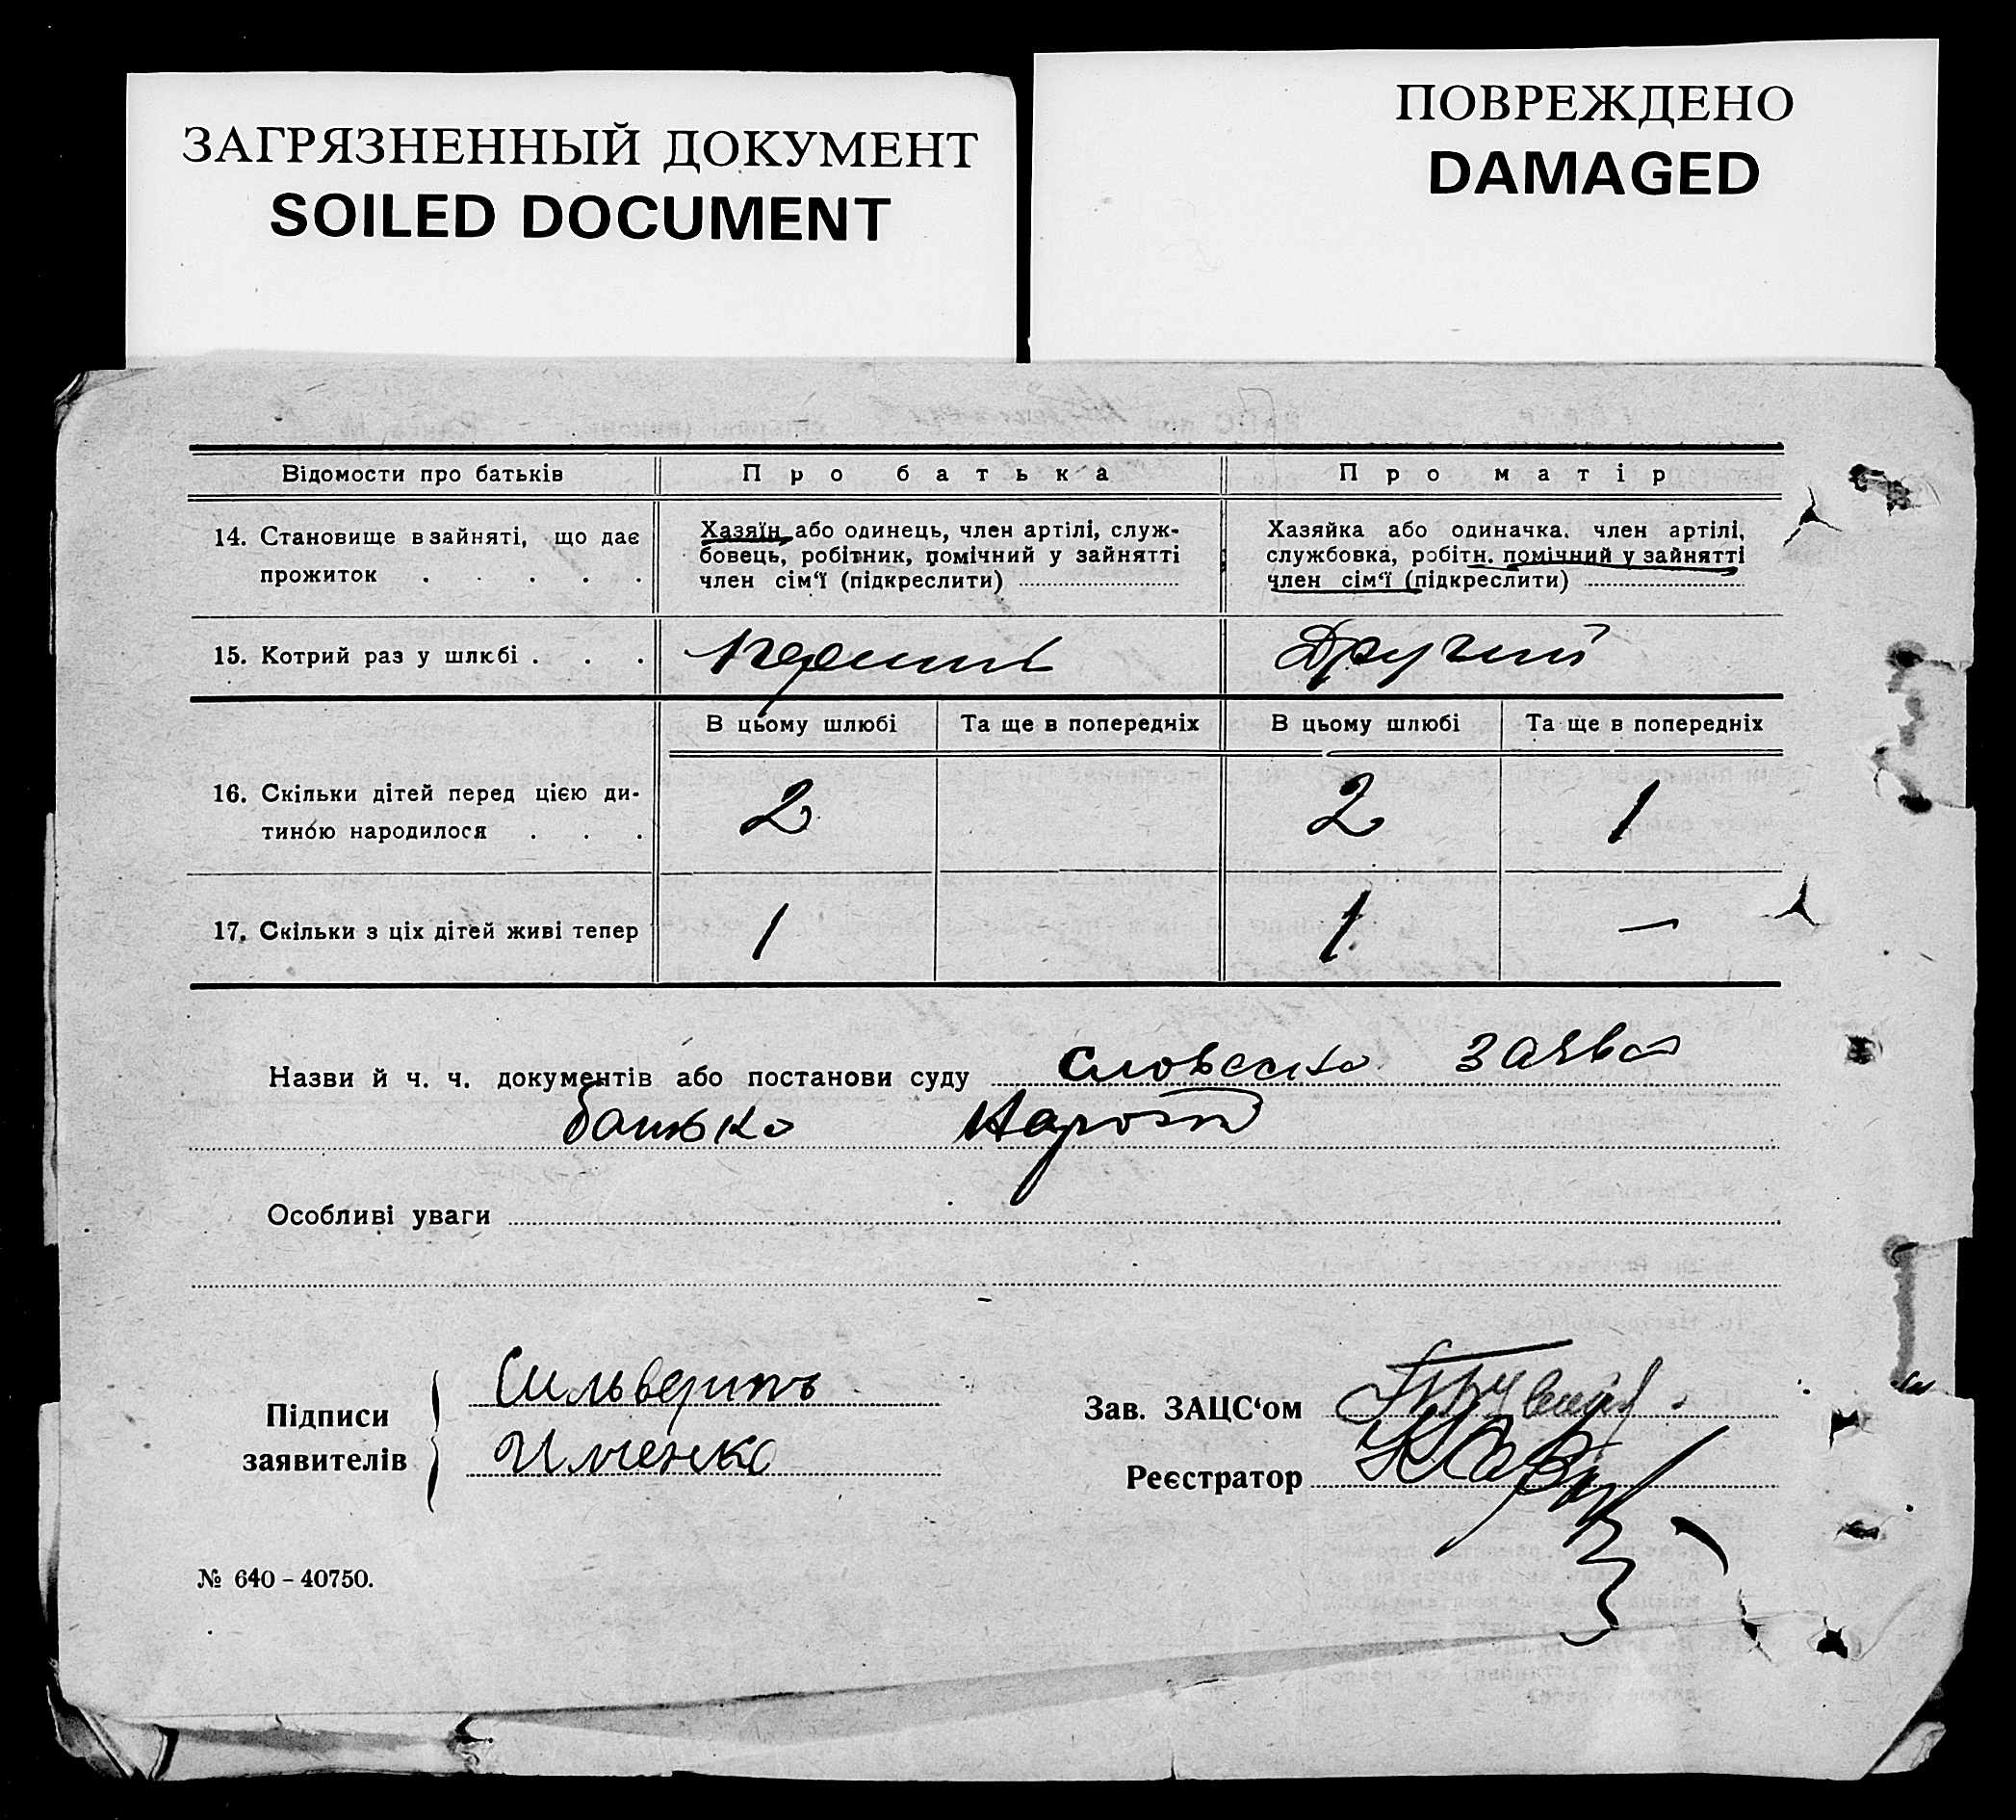 ЗАГРЯЗНЕННЫЙ ДОКУМЕНТ
SOILED DOCUMENT
ПОВРЕЖДЕНО
DAMAGED
Відомости про батьків Про батька Про матір
14. Становище в зайняті, що дає прожиток . . . . .
Хазяїн або одинець, член артілі, служ-
бовець, робітник, помічний у зайнятті
член сім‘ї (підкреслити)
Хазяйка або одиначка, член артілі,
службовка, робітн. помічний у зайнятті
член сім‘ї (підкреслити)
15. Котрий раз у шлюбі . . . Другий
В цьому шлюбі Та ще в попередніх В цьому шлюбі Та ще в попередніх
16. Скільки дітей перед цією ди-
тиною народилося . . . 2 2 1
17. Скільки з ціх дітей живі тепер 1 1 —
Назви й ч. ч. документів або постанови суду заява
батька
Особливі уваги
Підписи
заявителів
Сильверитъ
Именко
Зав. ЗАЦС‘ом
Реєстратор
№ 640 – 40750.